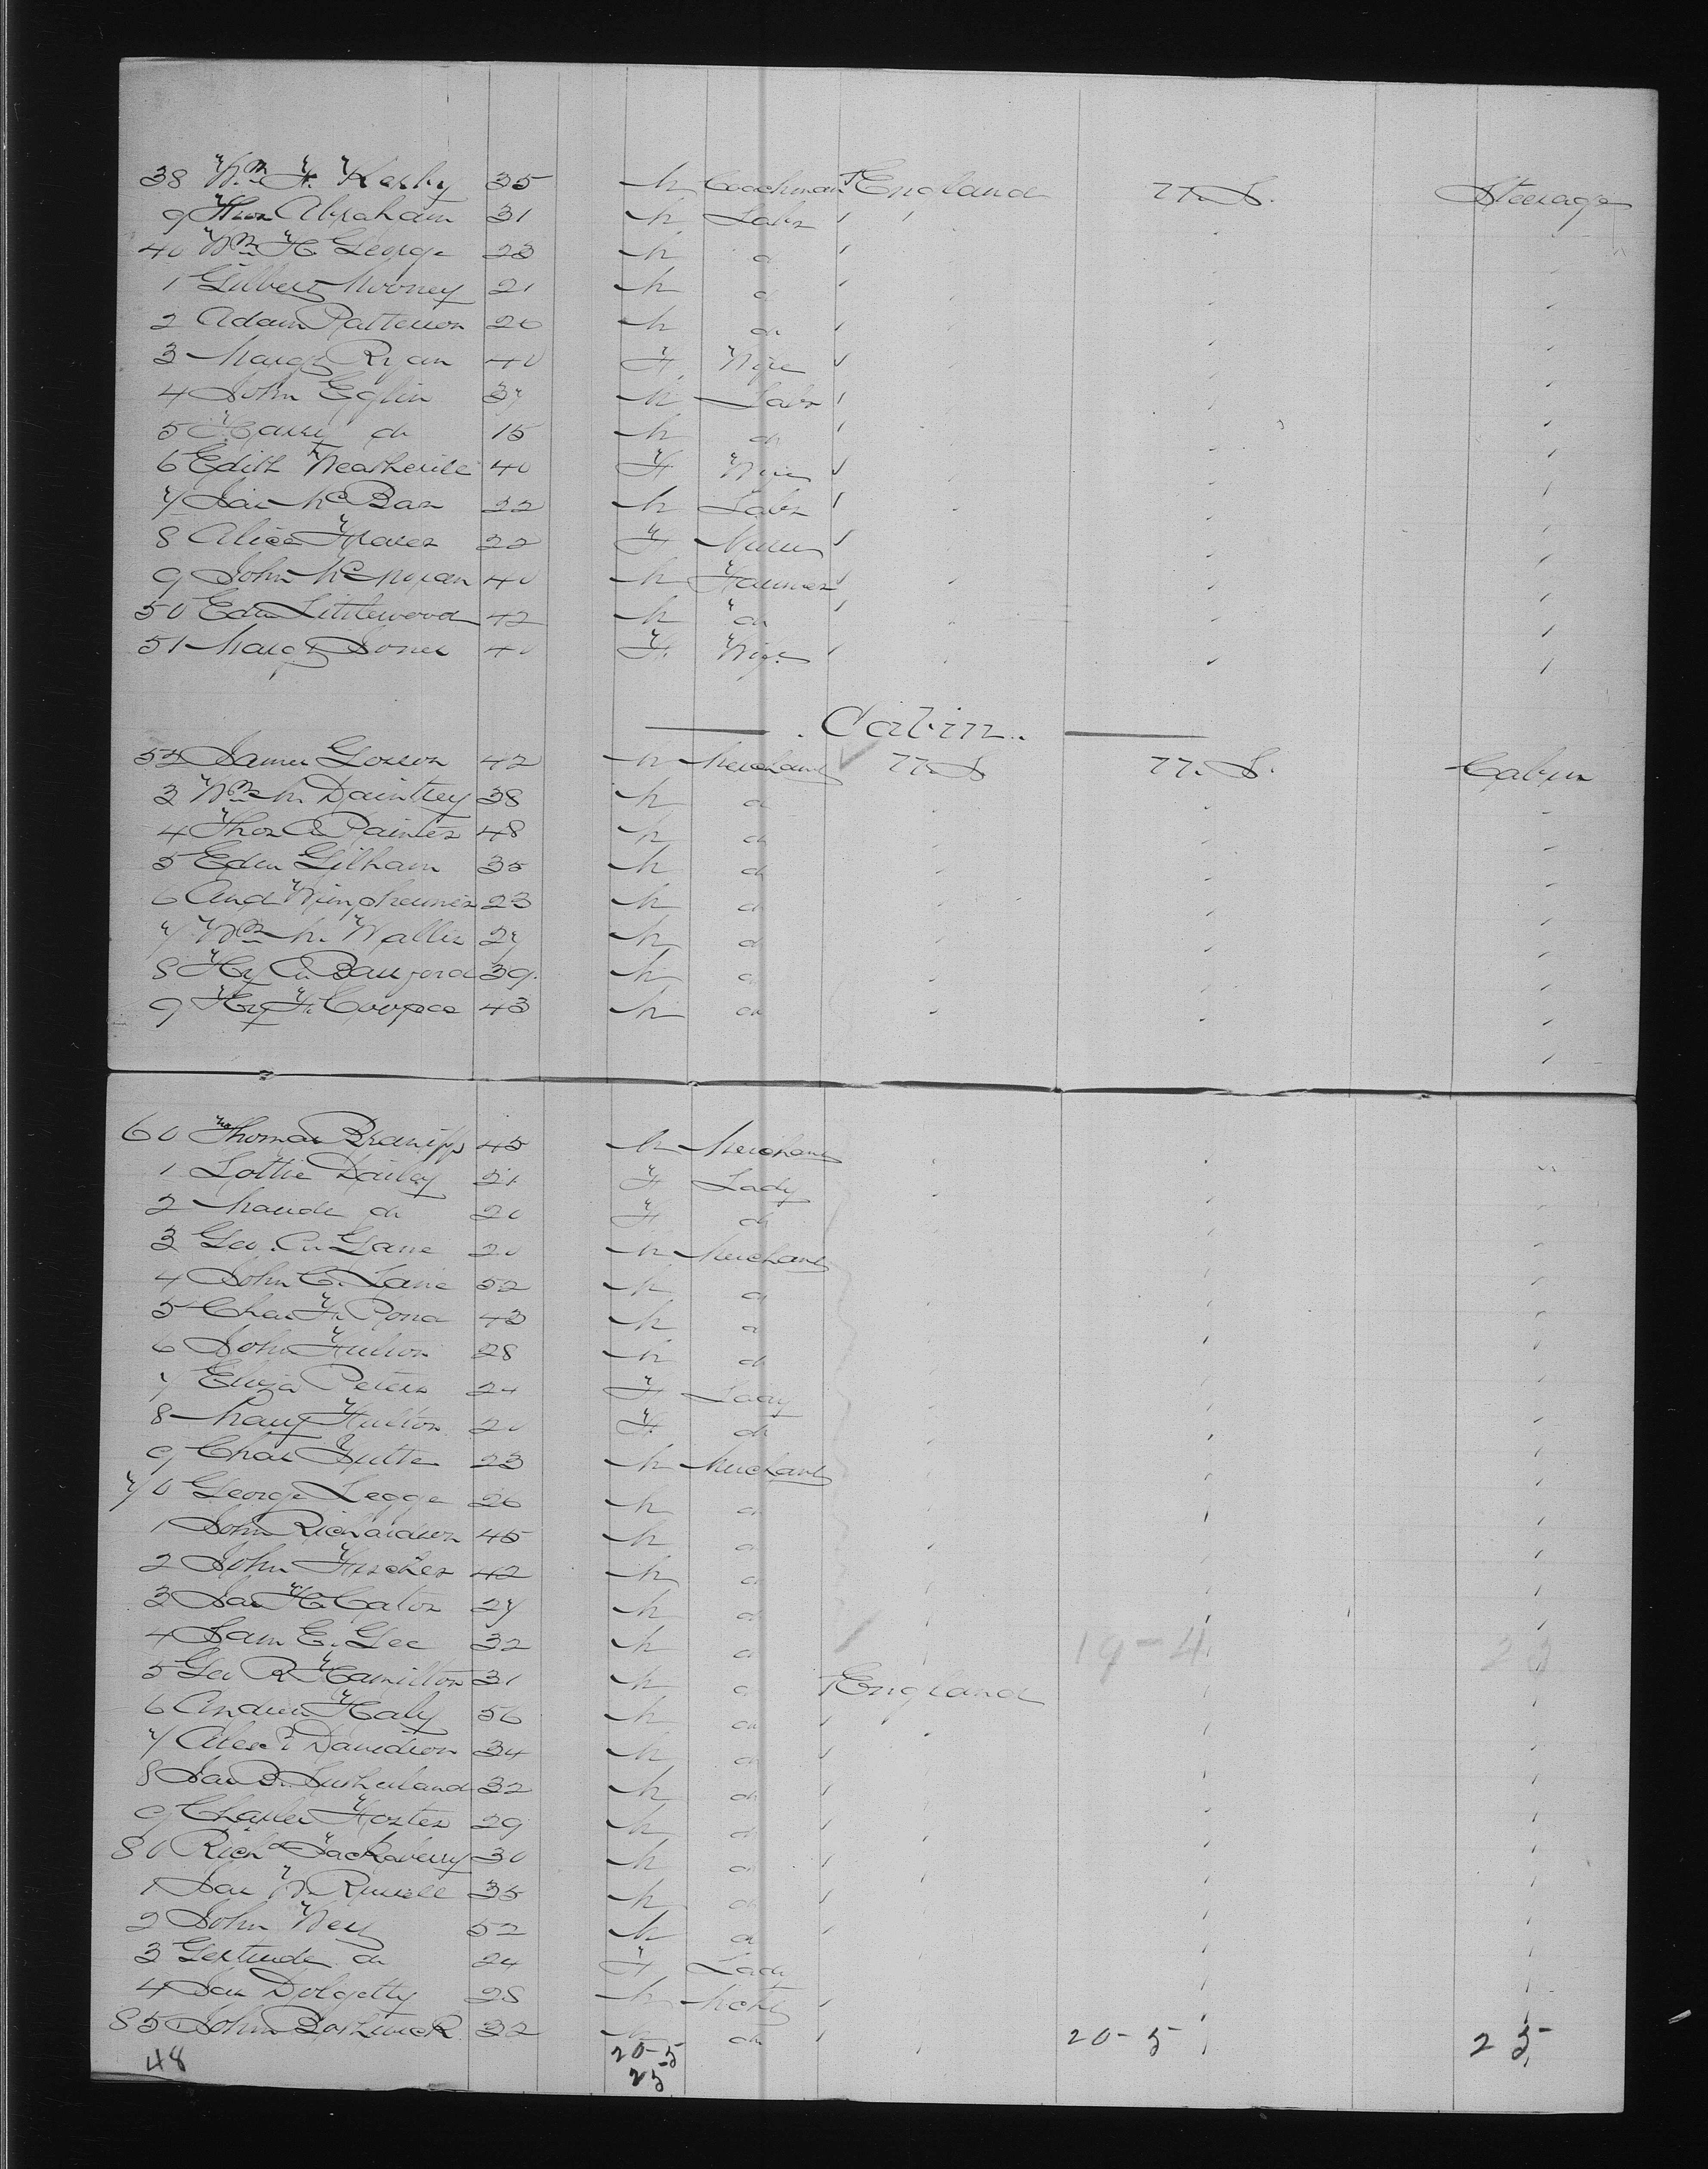 38 Wm F. Kerby 35 M Coachman England U.S. Steerage
9 Thos Abraham 31 M Labr " "
40 Wm H. George 23 M do "
1 Gilbert Mooney 21 M do "
2 Adam Patterson 20 M do "
3 Margt Ryan 40 F Wife "
4 John Eglin 37 M Labr "
5 Harry do 15 M do "
6 Edith 40 F Wife "
7 Jas McBar 22 M Labr "
8 Alice 22 F Nurse "
9 John 40 M Farmer "
50 Edw Littlewood 42 M do "
51 Margt Jones 40 F Wife "
Cabin
52 James 42 M Merchant U.S. U.S. Cabin
3 Wm M. Daintrey 38 M do
4 Thos A Painter 48 M do
5 Edw Gilham 35 M do
6 And 23 M do
7 Wm M. Wallis 27 M do
8 Hy A. 39 M do
9 Hy F. Cooper 43 M do
60 Thomas 45 M Merchant
1 Lottie Dailey 21 F Lady
2 Maude do 20 F do
3 Geo. A. Gane 20 M Merchant
4 John C. Lane 52 M do
5 Chas F. Pond 43 M do
6 John Hulton 28 M do
7 Eliza Peters 24 F Lady
8 Mary Hulton 20 F do
9 Chas 23 M Merchant
70 George Legge 26 M do
1 John Richardson 45 M do
2 John Fischer 42 M do
3 Jas H. Caton 27 M do
4 Sam E. Gee 32 M do 19-4
5 Geo R Hamilton 31 M do England
6 Andrew Haly 56 M do "
7 Alexr Davidson 34 M do "
8 Jas B. Sutherland 32 M do "
9 Charles Foster 29 M do "
80 Richd Tackaberry 30 M do "
1 Jas W. Russell 35 M do "
2 John Wey 52 M do "
3 Gertrude do 24 F Lady
4 Jas Dolgetty 28 M Mcht "
85 John Bosthwick 32 M do " 20-5 25
48 20-5
25